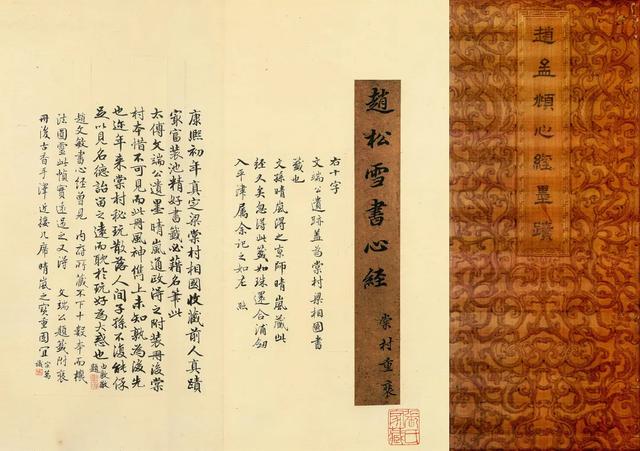 趙孟頫心經墨蹟
趙松雪書心經
棠村重裝
右十字
文端公遺跡蓋為棠村梁相國書
籤也
文孫晴嵐得之京師晴嵐藏此
經久矣忽得此籤如珠還合浦劒
入平津屬余記之如左
康熙初年真定梁棠村相國收藏前人真蹟
家富裝池精好書籤必藉名筆此
太傅文端公遺墨晴嵐通政得之附裝冊後棠
村本惜不可見而此冊風神儁上未知孰為後先
也近年來棠村秘玩散落人間子孫不復能保
並以見名德詒留之遠而耽於玩好為大惑也
由敦敬題
趙文敏書心經曾見 內府所藏不下十數本而橅
法圓靈此幀實遠過之又得 文端公題籤附裝
冊後古香手澤近接几席晴嵐之寶重固宜
宗萬識